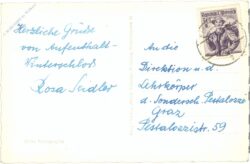 Herzliche Grüße
vom Aufenthalt-
Winterschlos
Rosa Sendler
An die
Direktion u. d.
Lehrkörper
d. Sondersch. Pestalozzi
Graz
Pestalozzistr 59